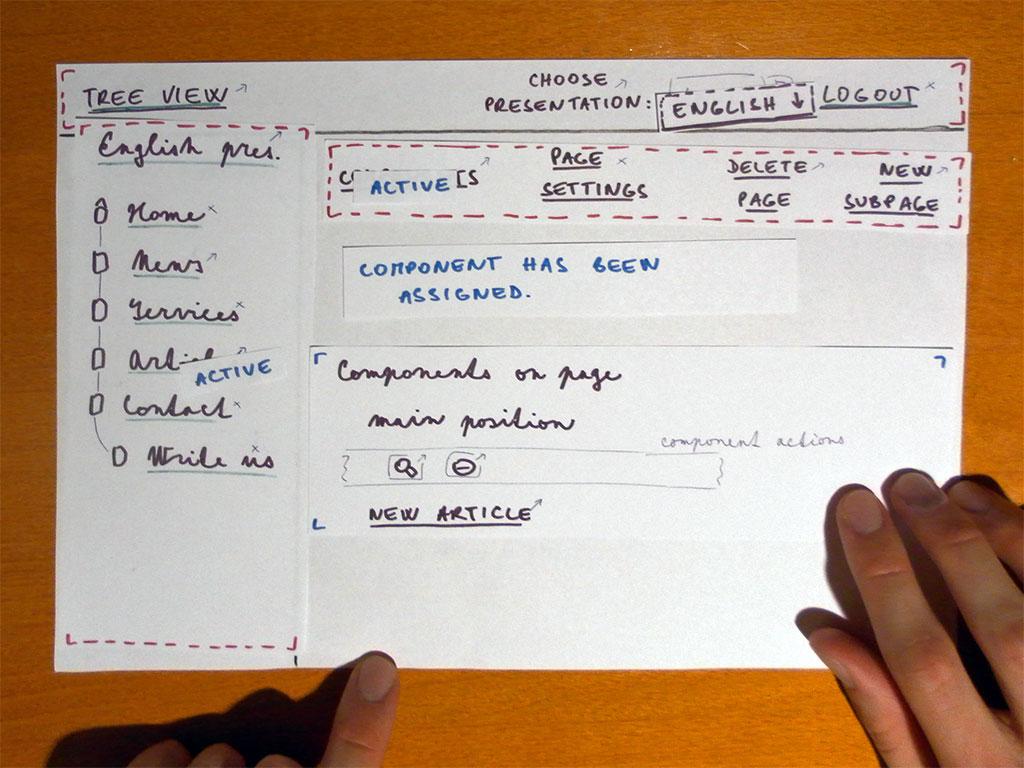 TREE VIEW
CHOOSE
PRESENTATION: ENGLISH ↓ LOGOUT
English pres.
Home
News
Services
Contact
Write us
ACTIVE
ACTIVE
PAGE
SETTINGS
DELETE
PAGE
NEW
SUBPAGE
COMPONENT HAS BEEN
ASSIGNED.
Components on page
main position
component actions
NEW ARTICLE